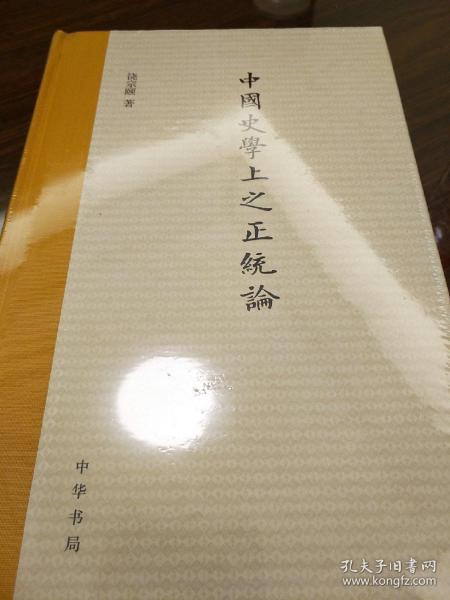 中國史學上之正統論
饶宗颐 著
中华书局
孔夫子旧书网
www.kongfz.com